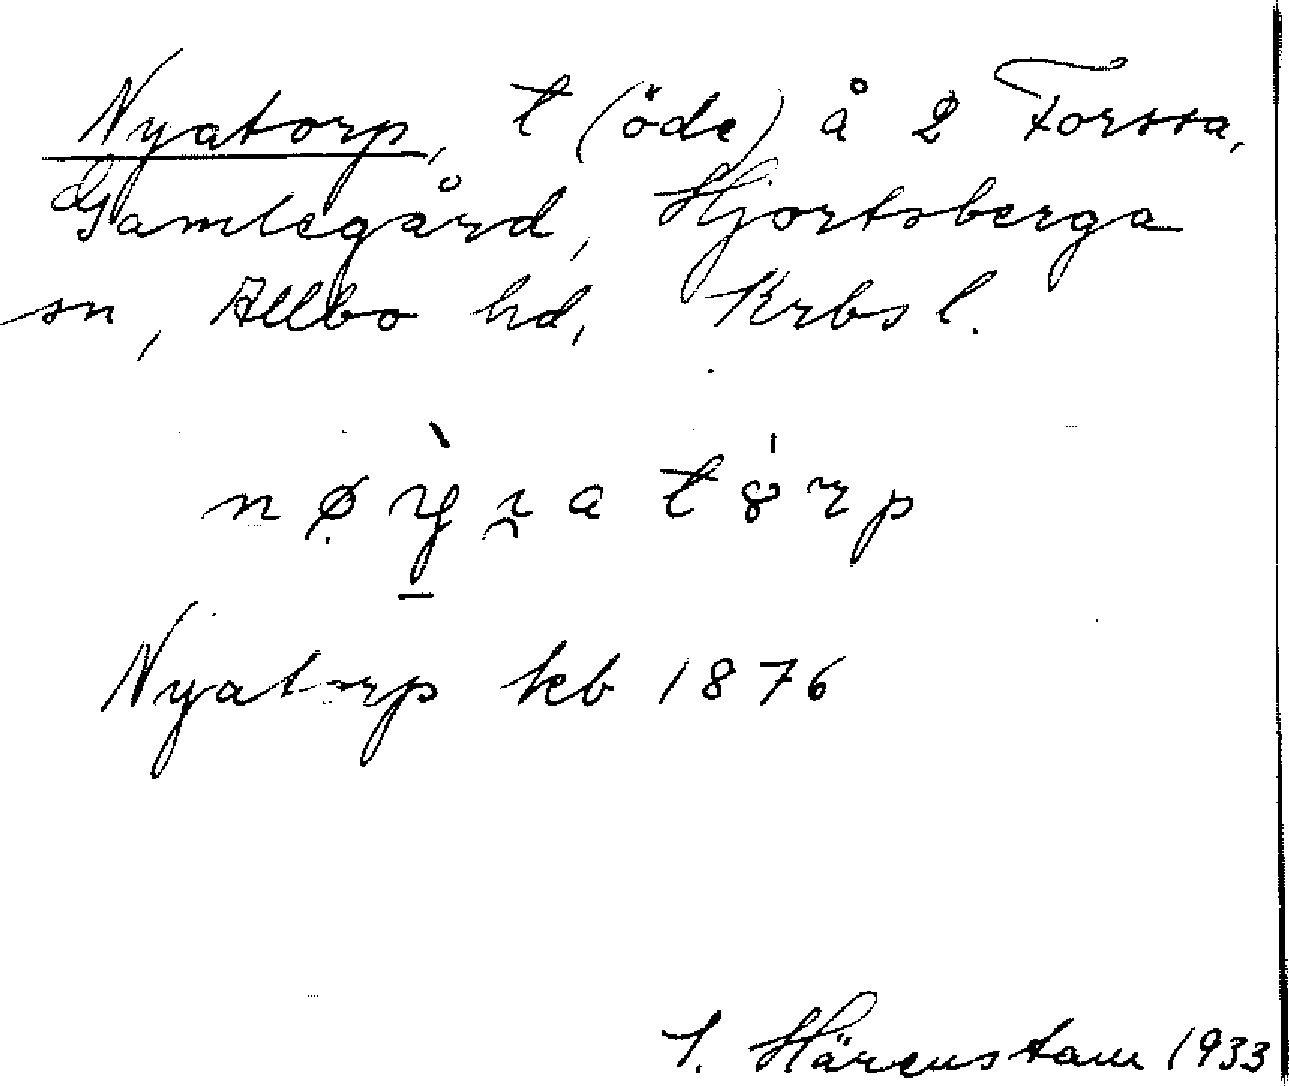 Nyatorp, t (öde) å 2 Forssa,
Gamlegård, Hjortsberga
sn, Allbo hd, Krbs l.
Nyatorp kb 1876
S. Härenstam 1933